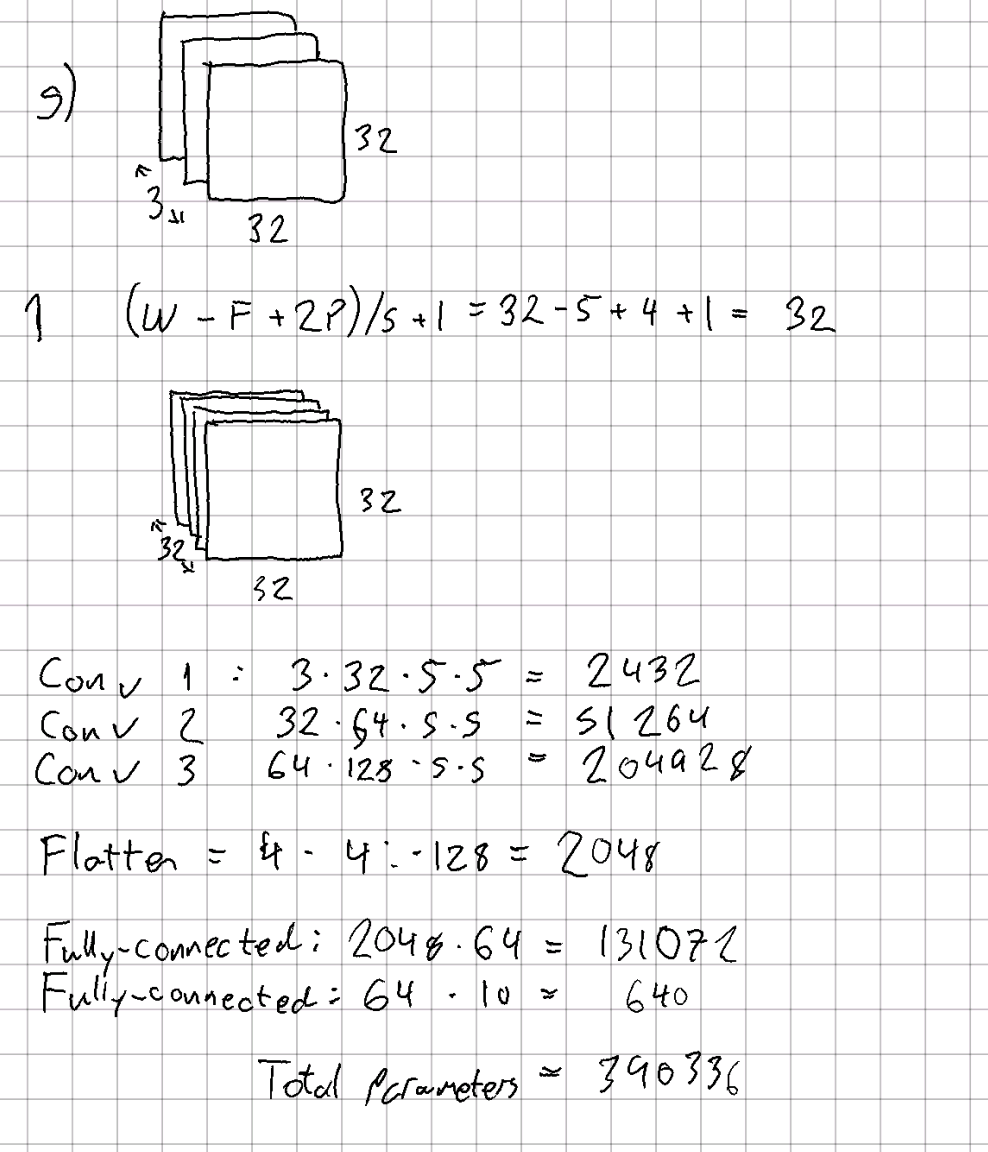 g)
32
3
32
1 (W - F + 2P)/S + 1 = 32 - 5 + 4 + 1 = 32
32
32
32
Conv 1 : 3 · 32 · 5 · 5 = 2432
Conv 2 32 · 64 · 5 · 5 = 51264
Conv 3 64 · 128 · 5 · 5 = 204928
Flatten = 4 · 4 · 128 = 2048
Fully-connected: 2048 · 64 = 131072
Fully-connected: 64 · 10 = 640
Total parameters = 390336